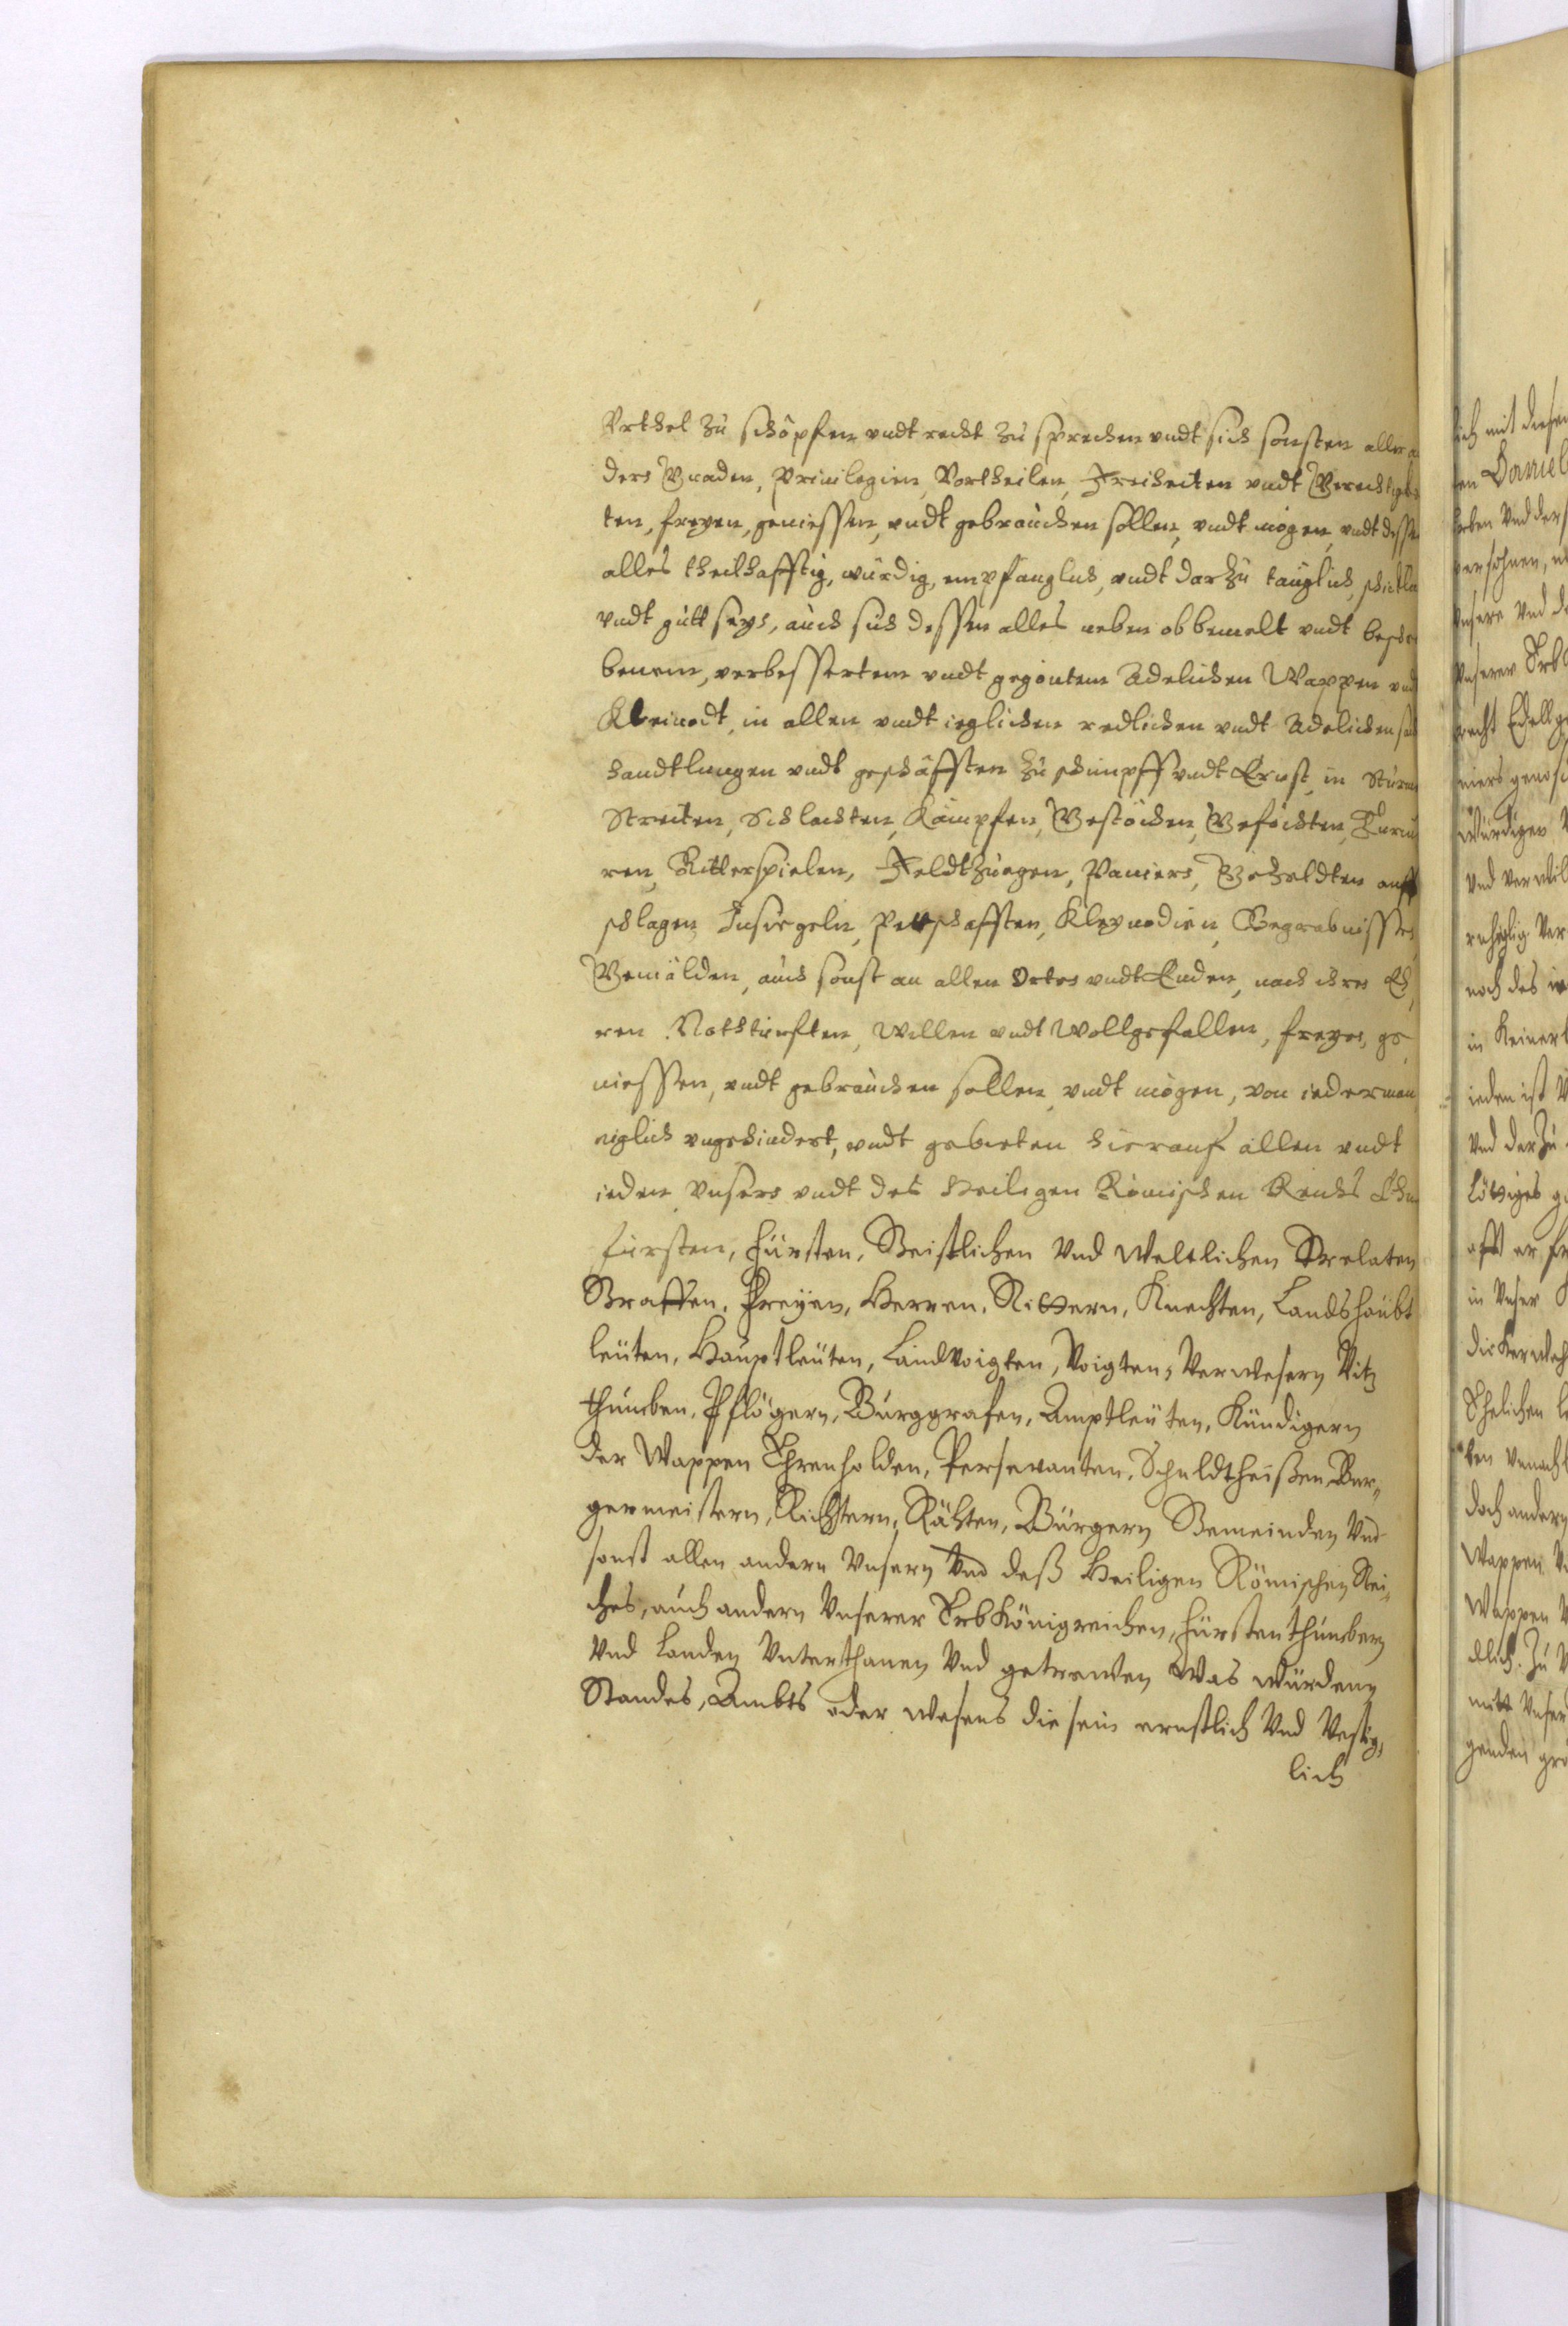 Vrthel zu schöpfen vndt recht zu sprechen vndt sich sonsten aller
ders Gnaden, Priuilegien, Vortheilen, Freiheiten vndt Gerechtigkei
ten, freyen, geniessen, vndt gebrauchen sollen, vndt mögen, vndt dessen
alles theilhafftig, würdig, empfanglich, vndt darzu tauglich, schicklich
vndt gutt seyn, auch sich dessen alles neben obbemelt vndt beschr
benem, verbessertem vndt gegöntem Adelichen Wappen vnd
Kleinodt, in allen vndt ieglichen redlichen vndt Adelichen
handtlungen vndt geschäfften zu schimpff vndt Ernst, in Sturm
Streiten, Schlachten, Kämpfen, Gestöchen, Gefechten, Turni
ren, Ritterspielen, Feldtzuegen, Paniers, Gezeldten auff
schlagen Insiegeln, Pettschafften, Kleynodien, Begrabnissen
Gemälden, auch sonst an allen Orten vndt Enden, nach ihren Eh
ren Nothturften, Willen vndt Wollgefallen, freyen, ge
niessen, vndt gebrauchen sollen, vndt mögen, von iederman
niglich vngehindert, vndt gebieten hierauf allen vndt
ieden Vnsern vndt des Heiligen Römischen Reichs Chur
fürsten, Fürsten, Geistlichen Vnd Weltlichen Prelaten
Graffen, Freyen, Herren, Rittern, Knechten, Landshaubt
leüten, Hauptleüten, Landvoigten, Voigten, Verwesern Vitz
thumben, Pflögern, Burggrafen, Amptleüten, Kündigern
der Wappen Ehrenholden, Persevanten, Schuldtheißen Bur„
germeistern, Richtern, Räthen, Bürgern Gemeinden Vnd
sonst allen andern Vnsern Vnd deß Heiligen Römischen Rei„
ches, auch andern Vnserer Erb Königreichen, Fürstenthumben
Vnd Landen Vnterthanen Vnd getrewen Was Würden
Standes, Ambts oder wesens die sein ernstlich Vnd Vestig„
lich